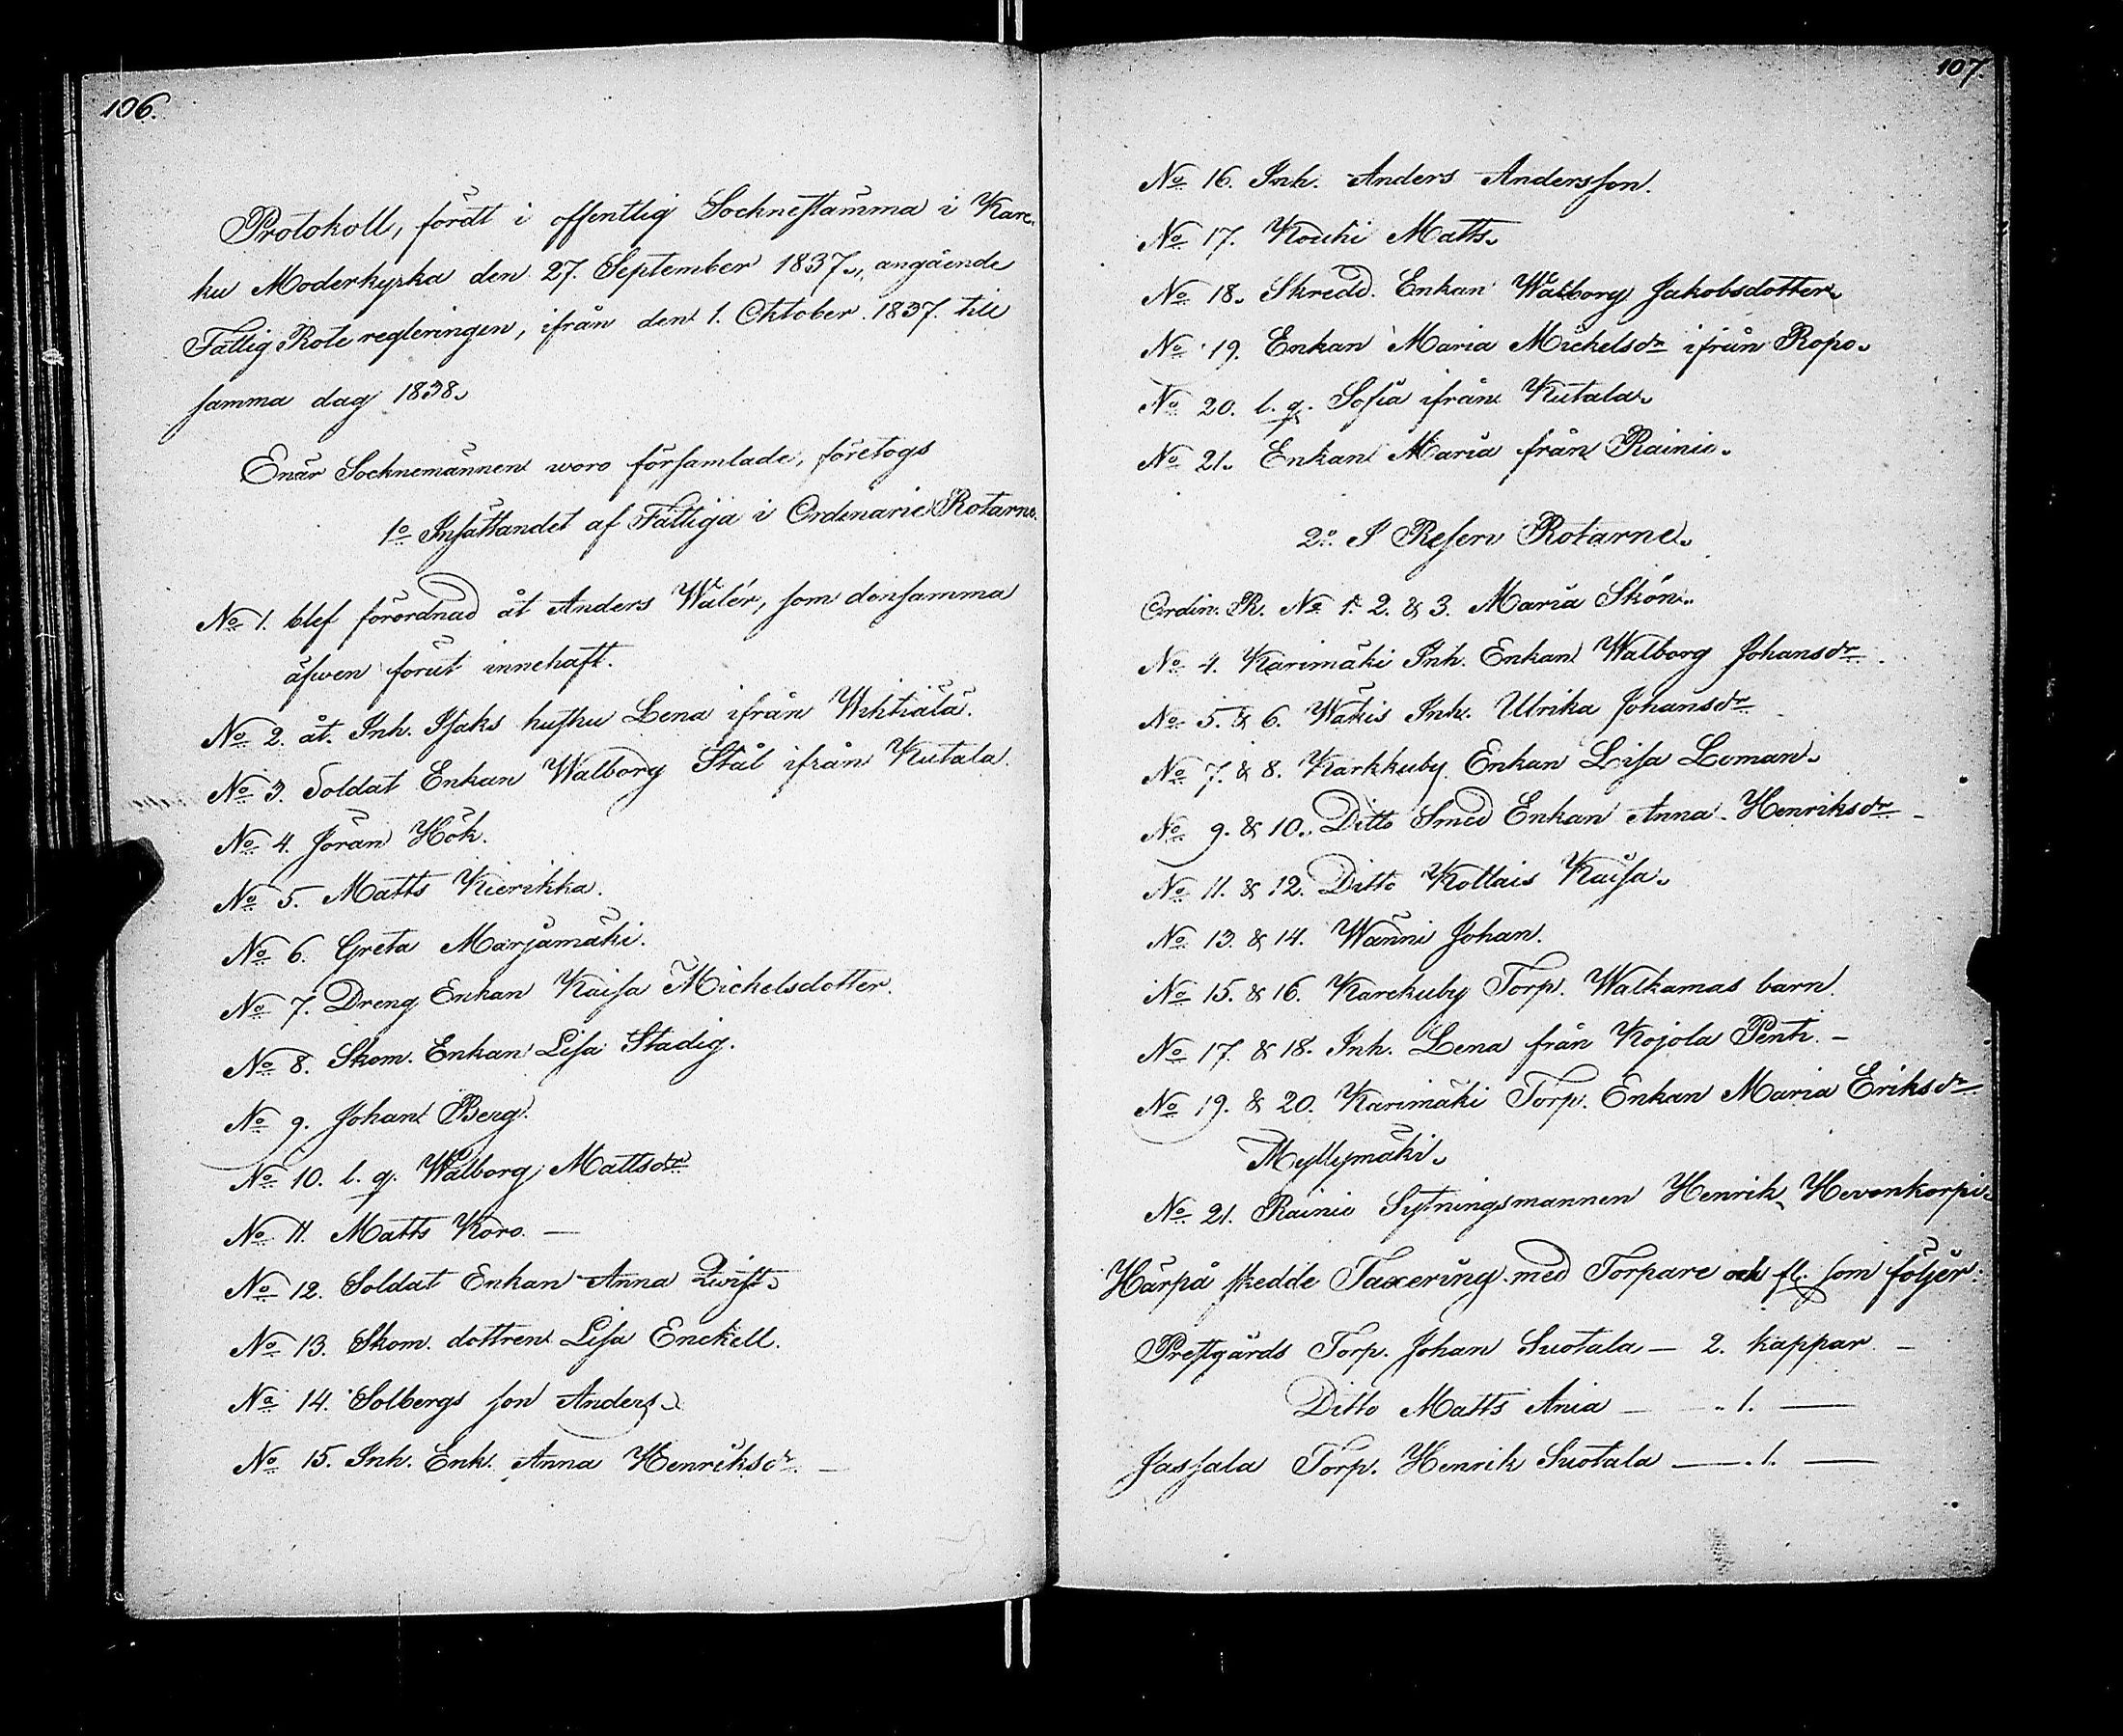 106.
Protokoll, fördt i offentlig Socknestämma i Kare-
ku Moderkyrka den 27. September 1837., angående
Fattig Rote regleringen, ifrån den 1. Oktober 1837. till
samma dag 1838.
Enär Socknemännen woro församlade, företogs
1o Insättandet af Fattiga i Ordinarie Rotarne.
No 1. blef förordnad åt Anders Walér, som densamma
äfwen förut innehaft.
No 2. åt Inh. Isaks hustru Lena ifrån Wihtiälä.
No 3. Soldat Enkan Walborg Stål ifrån Kutala.
No 4. Jöran Hök.
No 5. Matts Kierikka.
No 6. Greta Marjamäki.
No 7. Dreng Enkan Kaisa Michelsdotter.
No 8. Skom. Enkan Lisa Stadig.
No 9. Johan Berg.
No 10. l. q. Walborg Mattsdr
No 11. Matts Koro. —
No 12. Soldat Enkan Anna Qwist.
No 13. Skom. dottren Lisa Enckell.
No 14. Solbergs son Anders.
No 15. Inh. Enk. Anna Henriksdr. —
107.
No 16. Inh. Anders Andersson.
No 17. Kouki Matts.
No 18. Skredd. Enkan Walborg Jakobsdotter.
No 19. Enkan Maria Michelsdr ifrån Ropo.
No 20. l. q. Sofia ifrån Kutala.
No 21. Enkan Maria från Rainio.
2o. I Reserv Rotarne.
Ordin. R. No 1. 2. & 3. Maria Skön.
No 4. Karimäki Inh. Enkan Walborg Johansdr.
No 5. & 6. Wäkis Inh. Ulrika Johansdr
No 7. & 8. Karkkuby Enkan Lisa Loman.
No 9. & 10. Ditto Smed Enkan Anna Henriksdr —
No 11. & 12. Ditto Kollais Kaisa.
No 13. & 14. Wänni Johan.
No 15. & 16. Karckuby Torp. Walkamas barn.
No 17. & 18. Inh. Lena från Kojola Penti. —
No 19. & 20. Karimäki Torp. Enkan Maria Eriksdr
Myllymäki.
No 21. Rainio Sytningsmannen Henrik Hevonkorpi.
Härpå skedde Taxering med Torpare och fl. som följer:
Prestgårds Torp. Johan Suotala — 2. kappar —
Ditto Matts Ania — „ 1. —
Jassala Torp. Henrik Suotala — . 1. —